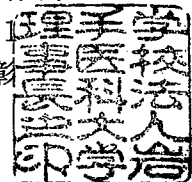 学校法人岩
手医科大学
理事長之印